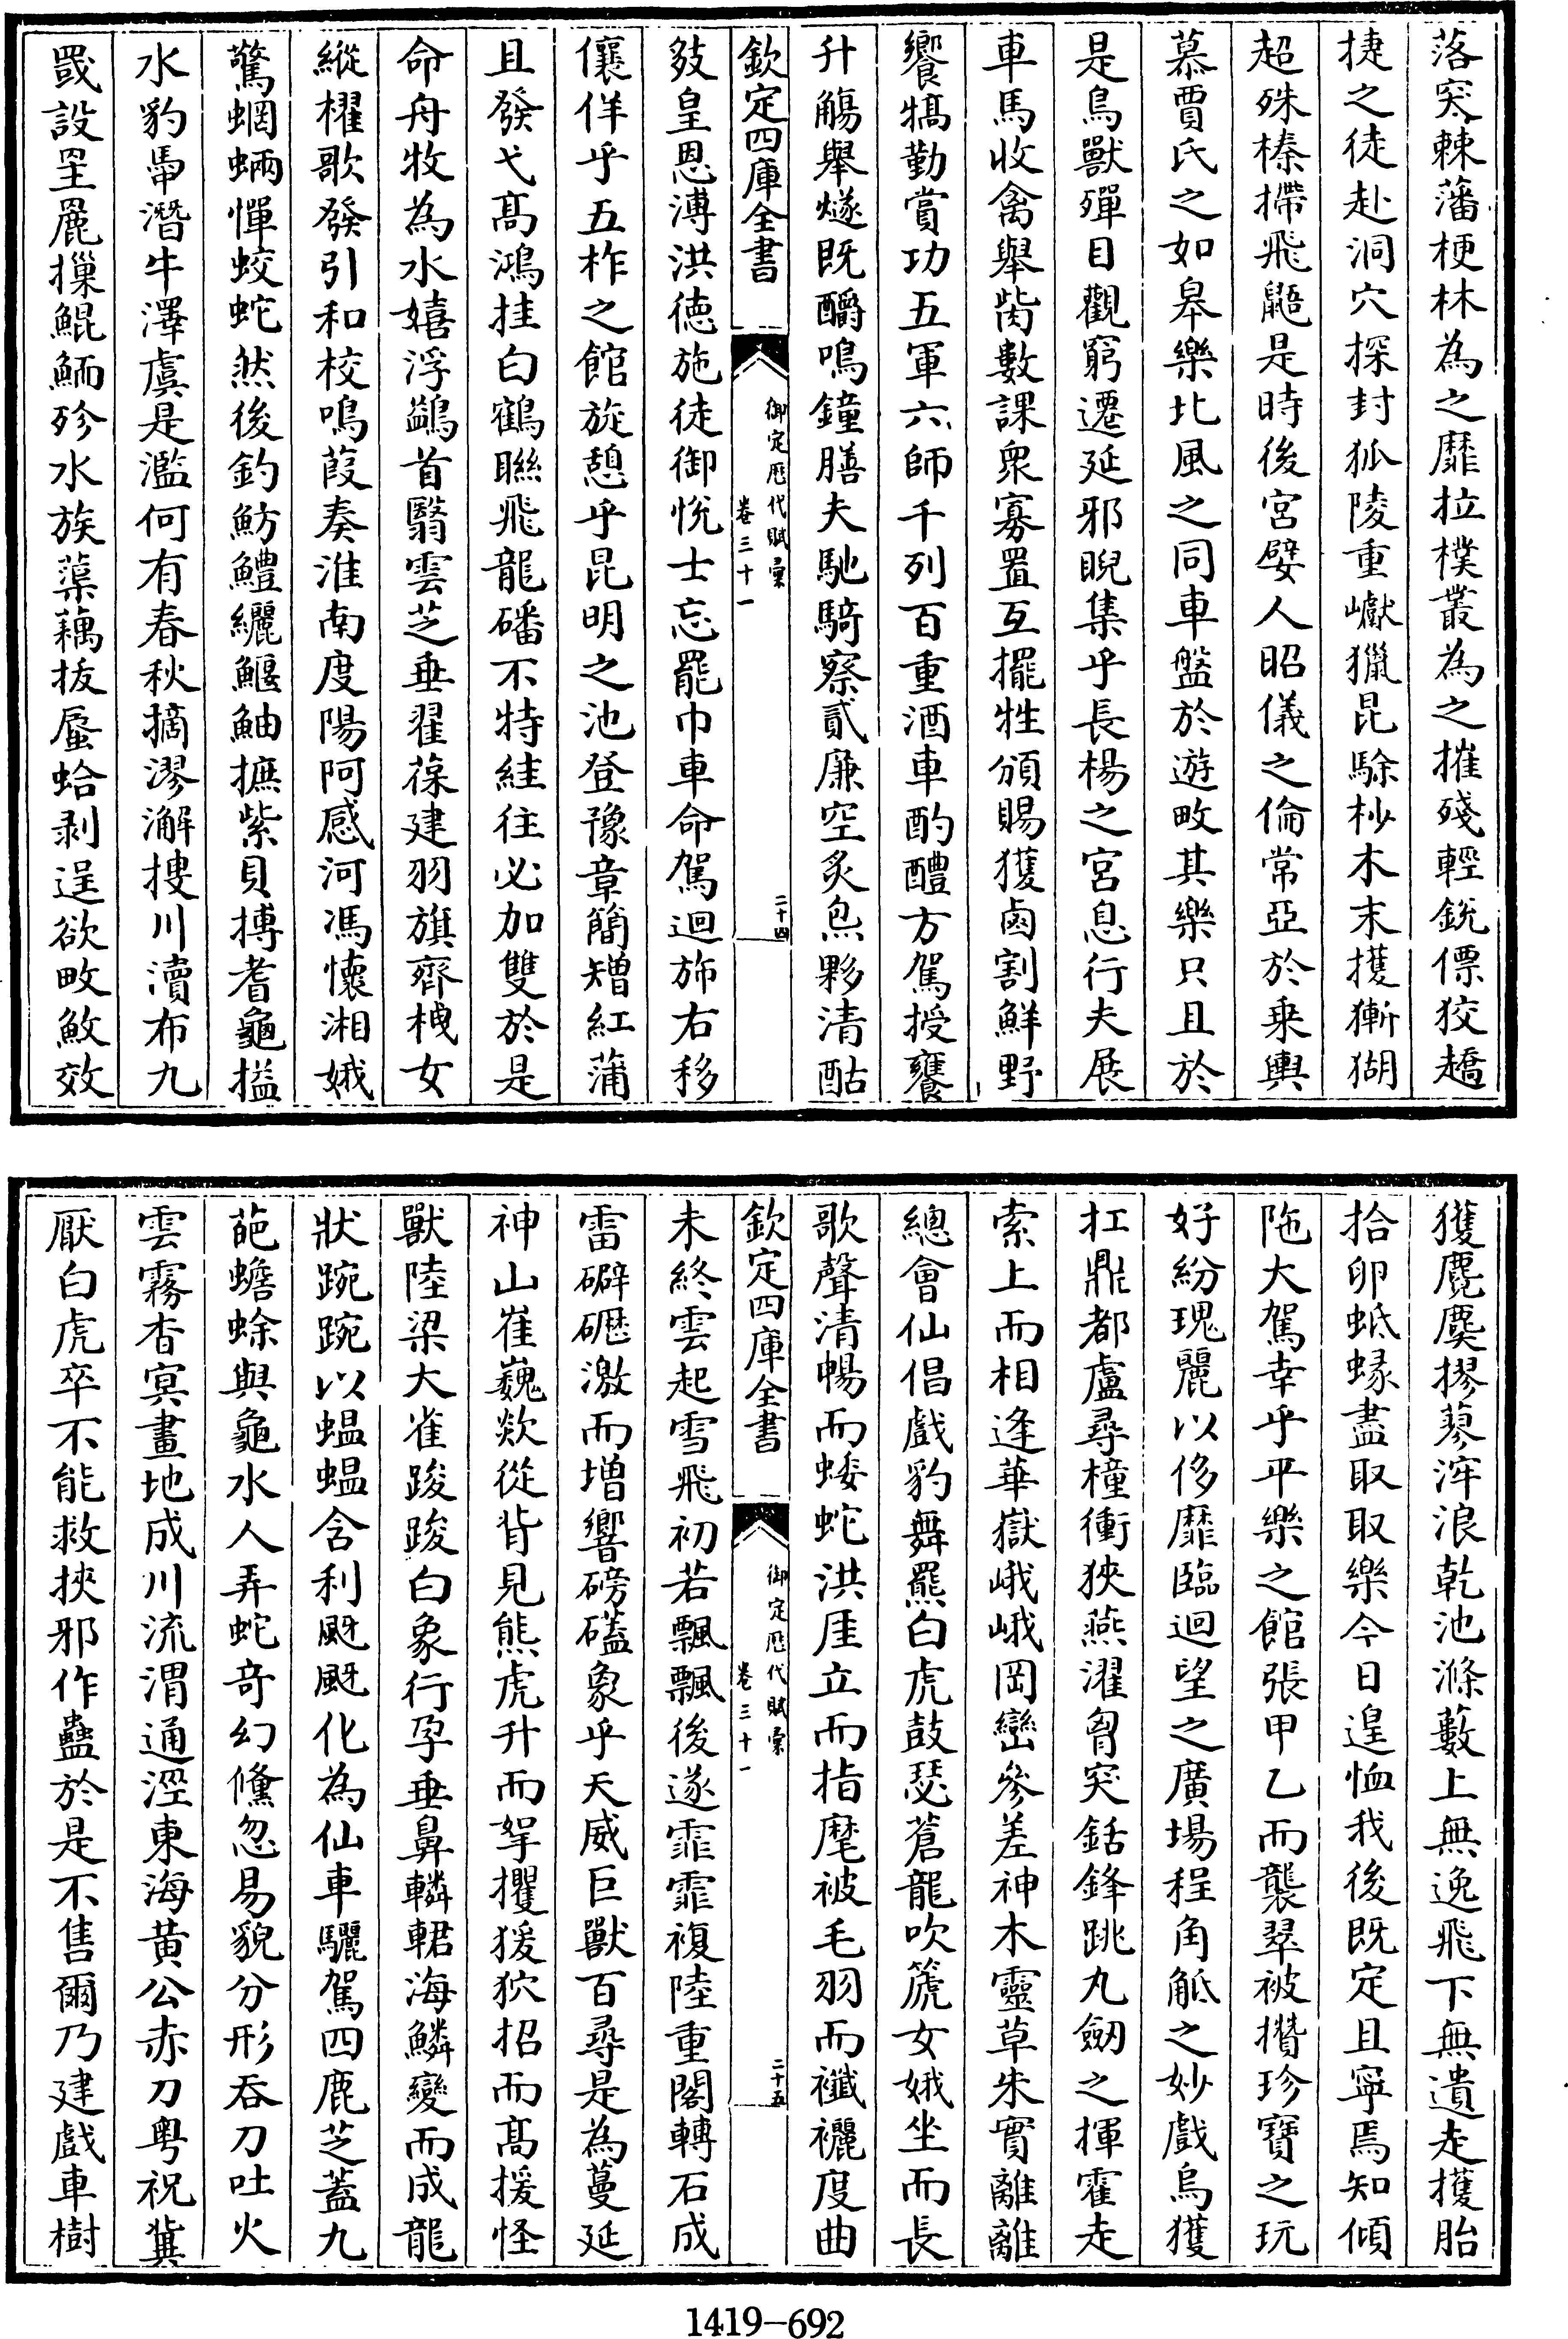 落突棘藩梗林為之靡拉樸叢為之摧殘輕銳僄狡趫
捷之徒赴洞穴探封狐陵重巘獵昆駼杪木末擭獑猢
超殊榛摕飛鼯是時後宮嬖人昭儀之倫常亞於乗輿
慕賈氏之如皋樂北風之同車盤於遊畋其樂只且於
是鳥獸殫目觀窮遷延邪睨集乎長楊之宮息行夫展
車馬收禽舉胔數課衆寡置互擺牲頒賜獲鹵割鮮野
饗犒勤賞功五軍六師千列百重酒車酌醴方駕授饔
升觴舉燧既釂鳴鐘膳夫馳騎察貳廉空炙炰夥清酤
欽定四庫全書
御定歴代賦彙
卷三十一
二十四
䝘皇恩溥洪德施徒御恱士忘罷巾車命駕迴斾右移
儴佯乎五柞之館旋憩乎昆明之池登豫章簡矰紅蒲
且發弋高鴻挂白鶴聯飛龍磻不特絓往必加雙於是
命舟牧為水嬉浮鷁首翳雲芝垂翟葆建羽旗齊栧女
縱櫂歌發引和校鳴葭奏淮南度陽阿感河馮懷湘娥
驚蝄蜽憚蛟蛇然後釣魴鱧纚鰋鮋摭紫貝搏耆龜搤
水豹馽潛牛澤虞是濫何有春秋摘漻澥搜川瀆布九
罭設罜䍡摷鯤鮞殄水族蕖藕拔蜃蛤剥逞欲畋䱷效
獲麑麇摎蓼浶浪乾池滌藪上無逸飛下無遺走擭胎
拾卵蚳蝝盡取取樂今日遑恤我後既定且寧焉知傾
陁大駕幸乎平樂之館張甲乙而襲翠被攢珍寶之玩
好紛瑰麗以侈靡臨迴望之廣場程角觝之妙戲烏獲
扛鼎都盧尋橦衝狹燕濯胷突銛鋒跳丸劒之揮霍走
索上而相逢華嶽峨峨岡巒參差神木靈草朱實離離
總會仙倡戲豹舞羆白虎鼓瑟蒼龍吹篪女娥坐而長
歌聲清暢而蜲蛇洪厓立而指麾被毛羽而襳襹度曲
欽定四庫全書
御定歴代賦彙
卷三十一
二十五
未終雲起雪飛初若飄飄後遂霏霏複陸重閣轉石成
雷礔礰激而增響磅礚象乎天威巨獸百尋是為蔓延
神山崔巍欻從背見熊虎升而挐攫猨狖招而高援怪
獸陸梁大雀踆踆白象行孕垂鼻轔輑海鱗變而成龍
狀蜿蜿以蝹蝹含利颬颬化為仙車驪駕四鹿芝蓋九
葩蟾蜍與龜水人弄蛇奇幻儵忽易貌分形吞刀吐火
雲霧杳冥畫地成川流渭通涇東海黄公赤刀粤祝冀
厭白虎卒不能救挾邪作蠱於是不售爾乃建戲車樹
1419-692